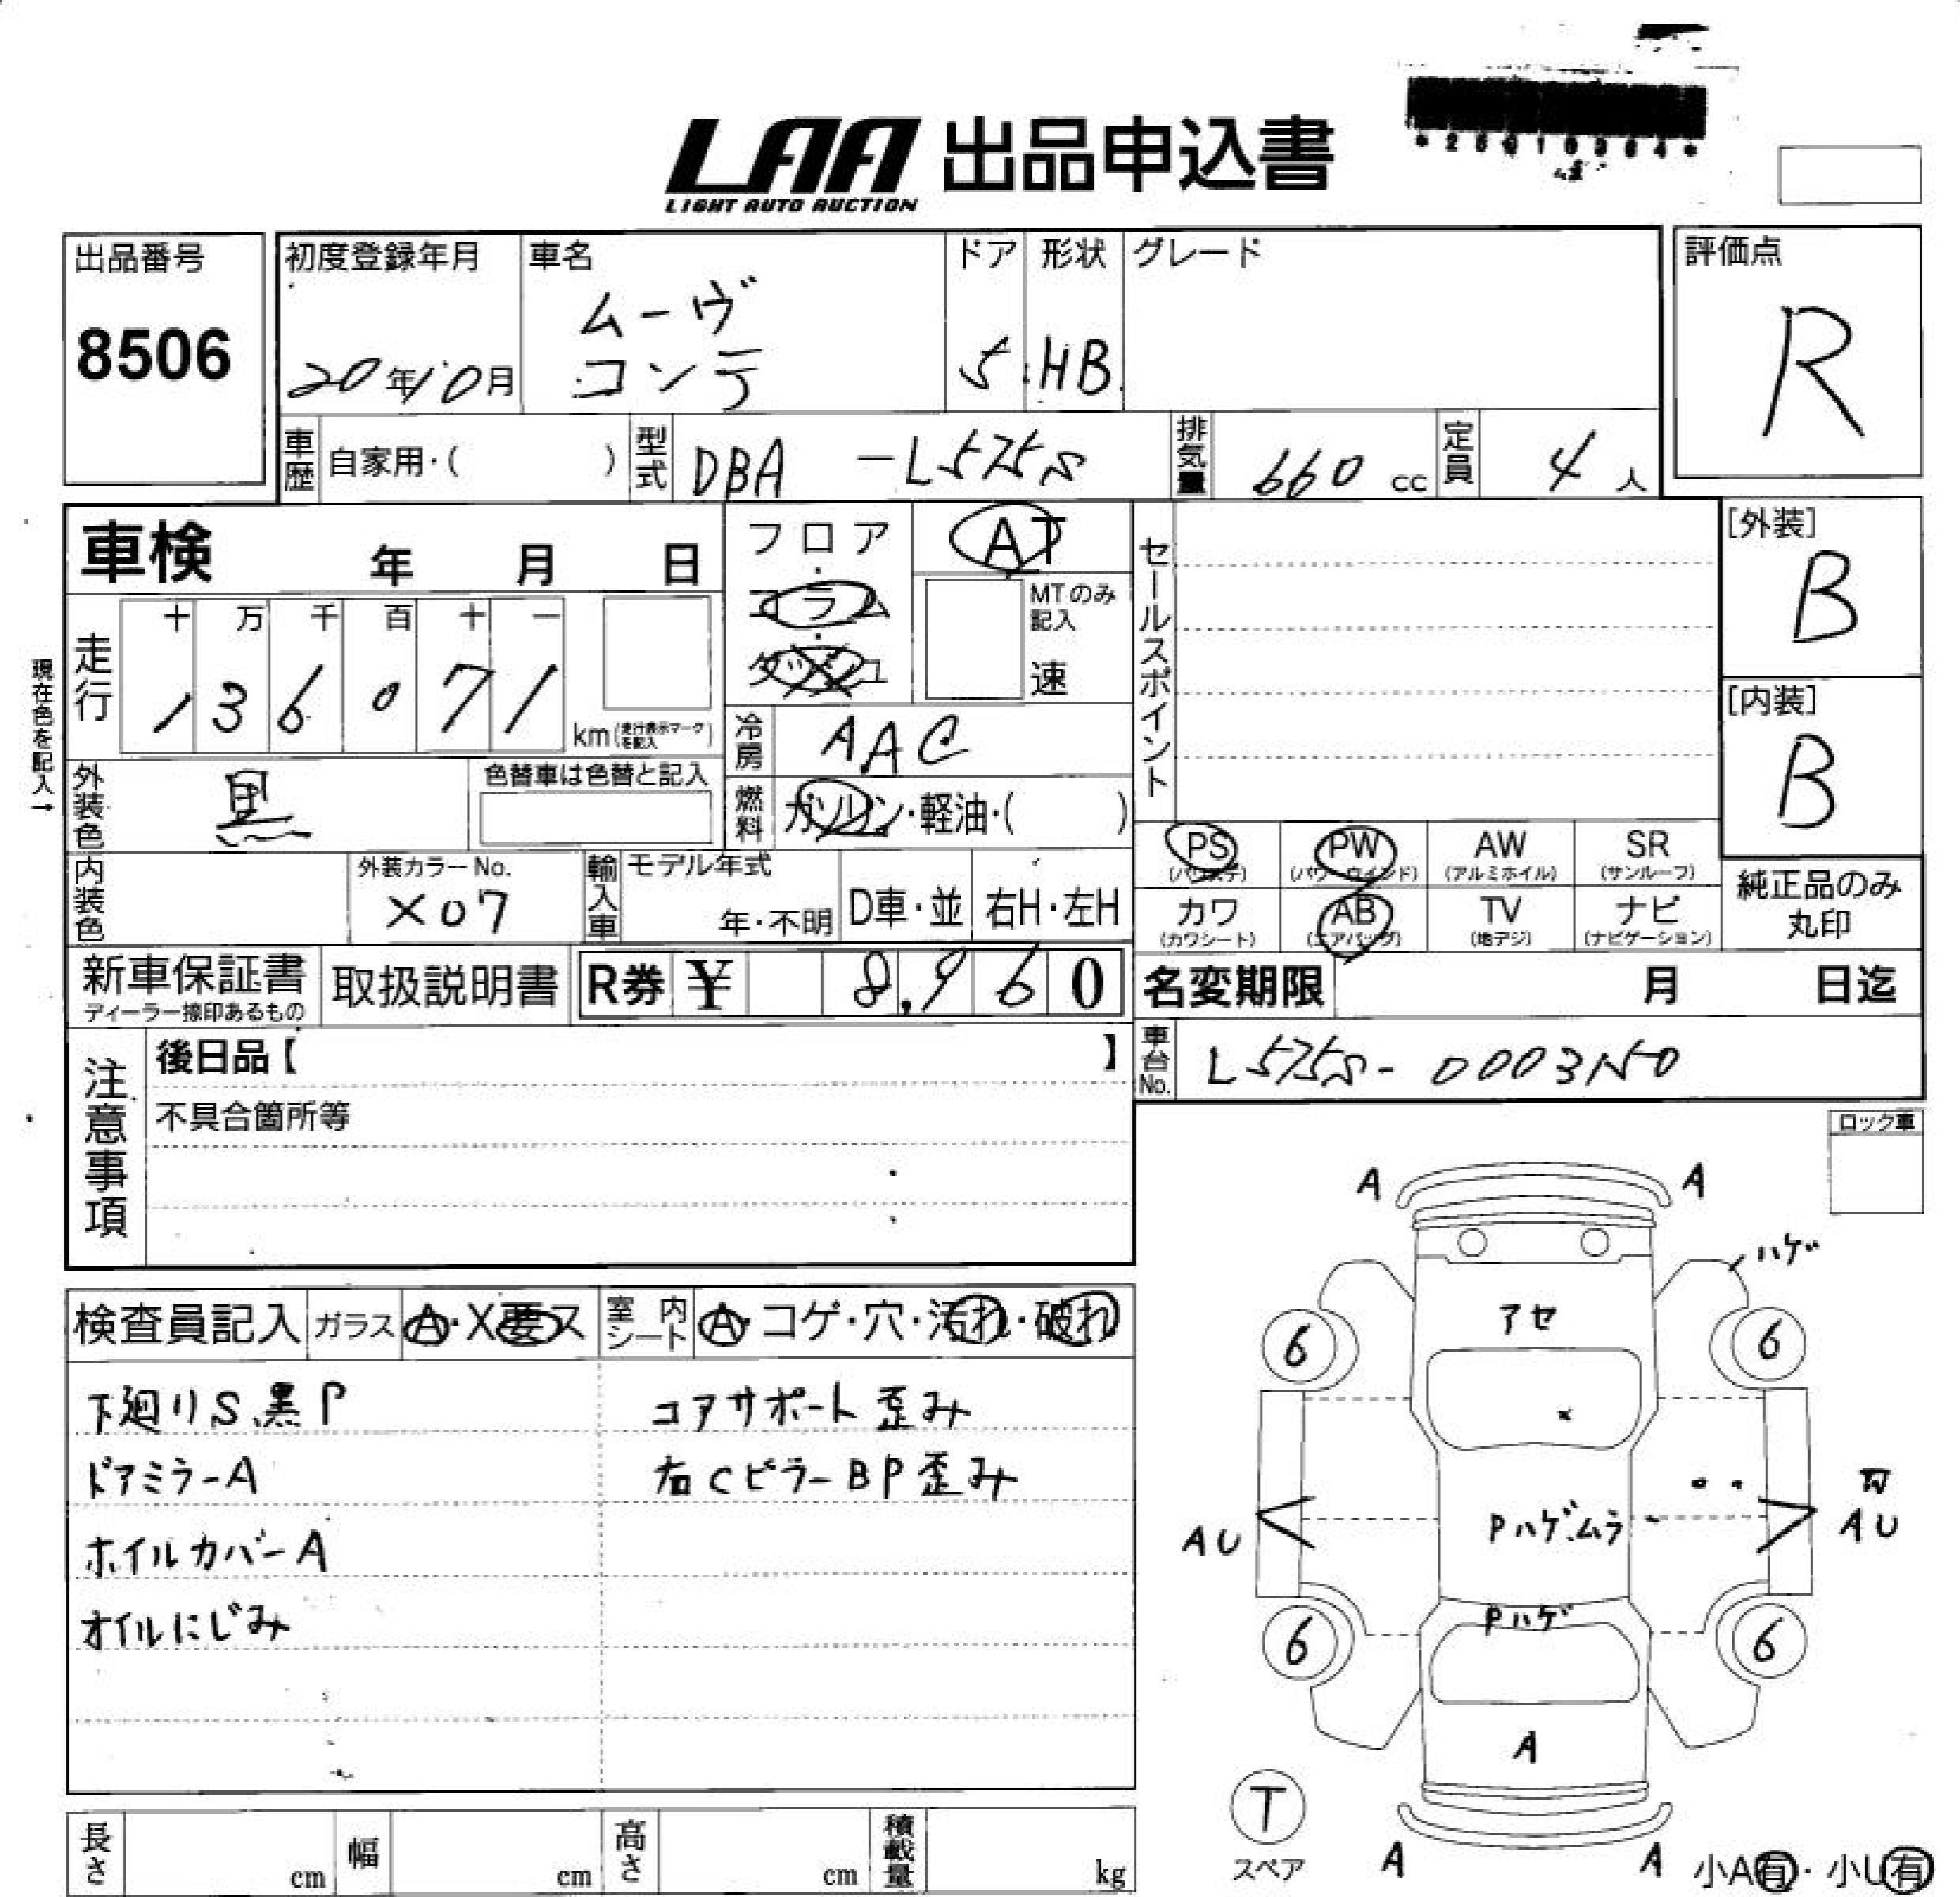 LAA 出品申込書
LIGHT AUTO AUCTION
出品番号
8506
初度登録年月
20年10月
車名
ムーヴ
コンテ
ドア
5
形状
HB
グレード
評価点
R
車歴
自家用・( )
型式
DBA -L575S
排気量
660 cc
定員
4 人
車検 年 月 日
フロア
・
コラム
・
AT
MTのみ
記入
速
セールスポイント
[外装]
B
[内装]
B
現在色を記入→
走行
十 万 千 百 十 一
1 3 6 0 7 1
km(走行表示マークを記入)
冷房
AAC
外装色
黒
色替車は色替と記入
燃料
ガソリン・軽油・( )
内装色
外装カラーNo.
X07
輸入車
モデル年式
年・不明
D車・並
右H・左H
PS
(パワステ)
PW
(パワーウインド)
AW
(アルミホイル)
SR
(サンルーフ)
カワ
(カワシート)
AB
(エアバッグ)
TV
(地デジ)
ナビ
(ナビゲーション)
純正品のみ
丸印
新車保証書
ディーラー捺印あるもの
取扱説明書
R券 ¥ 8,960
名変期限 月 日迄
車台No.
L575S- 0003150
注意事項
後日品【 】
不具合箇所等
ロック車
検査員記入
ガラス
A・X要ス
室内シート
A・コゲ・穴・汚れ・破れ
下廻りS、黒P
コアサポート歪み
ドアミラーA
右CピラーBP歪み
ホイルカバーA
オイルにじみ
A
A
ハゲ
アセ
6
6
AU
Pハゲ、ムラ
AU
Pハゲ
6
6
A
T
スペア
A
A
小A有・小U有
長さ cm
幅 cm
高さ cm
積載量 kg